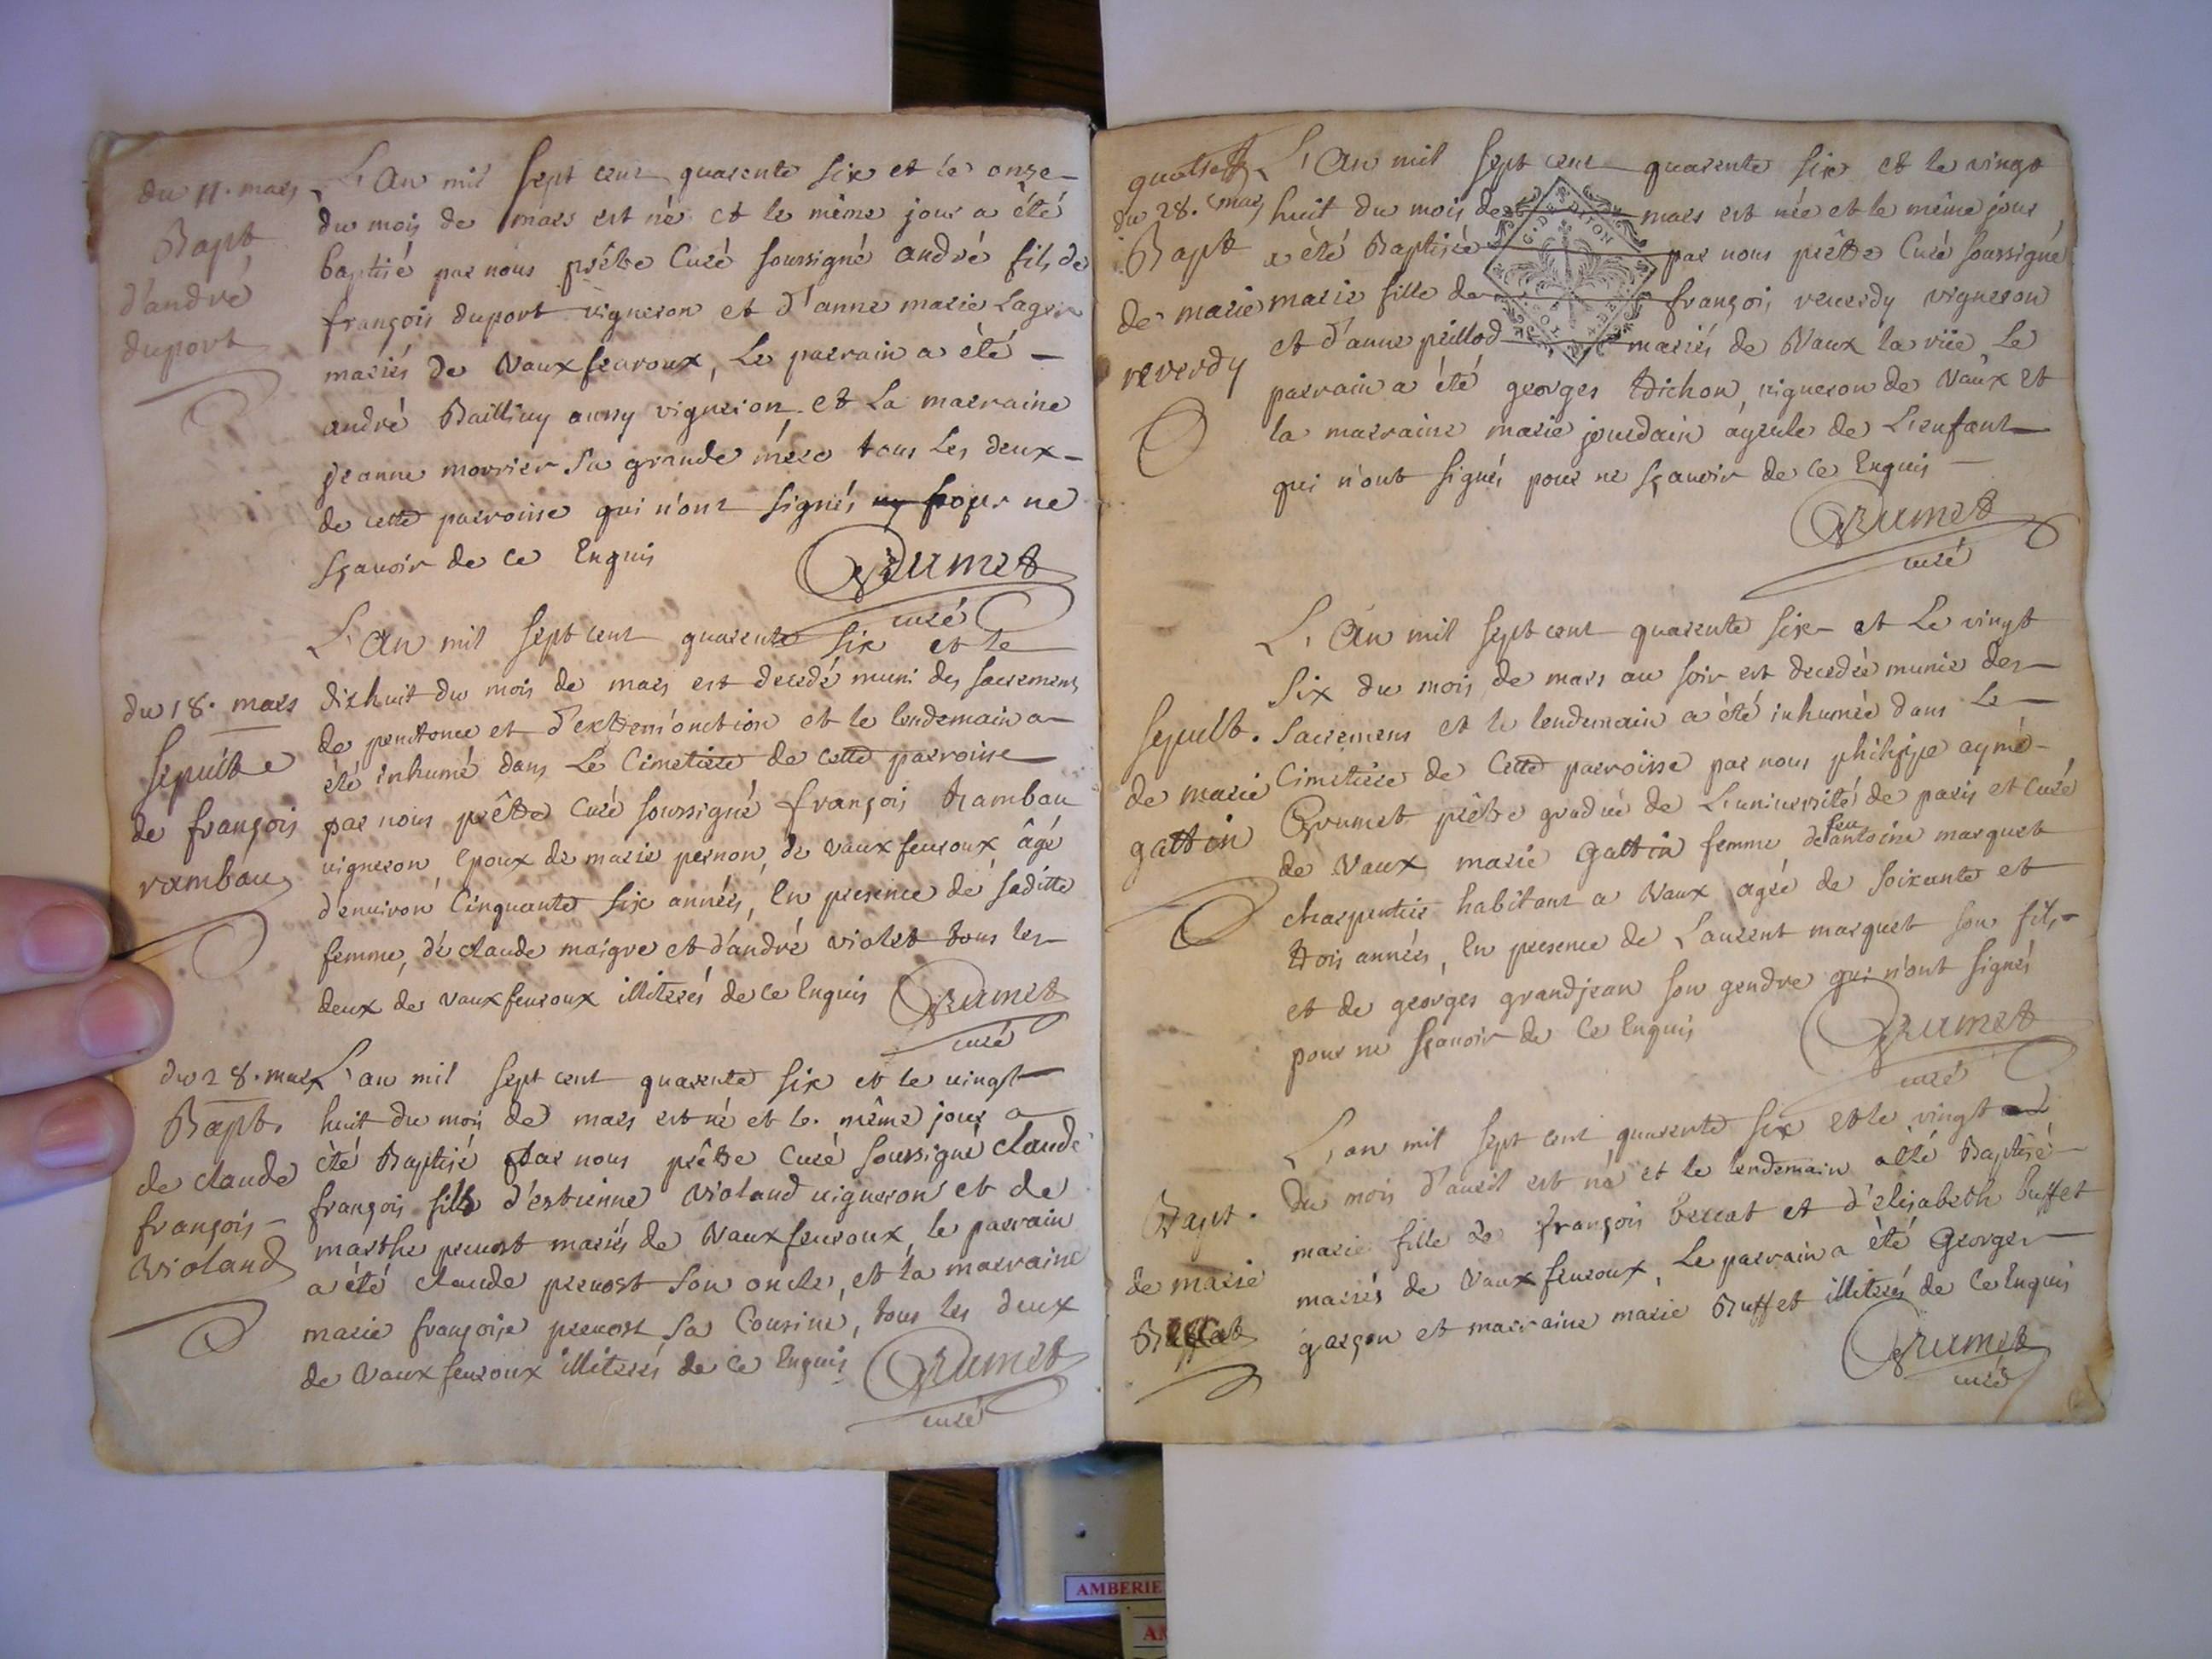 du 11. mars
Bapt
d'andré
duport
L'An mil sept cent quarente six et le onze
du mois de mars est né et le même jour a été
baptisé par nous prêtre Curé soussigné andré fils de
françois duport vigneron et d'anne marie Lager
mariés de Vaux fevroux, Le parrain a été
andré Bailliuy aussy vigneron et La marraine
jeanne morrier sa grande mére tous Les deux
de cette parroisse qui n'ont signés pour ne
sçavoir de ce Enquis
Grumet
curé
du 18. mars
sepult
de françois
rambau
L'An mil sept cent quarente six et le
dixhuit du mois de mars est decedé muni des sacremens
de penitence et d'extremonction et le lendemain a
été inhumé dans Le Cimetiere de cette parroisse
par nous prêtre Curé soussigné françois Rambau
vigneron Epoux de marie pernon, de vaux fevroux âgé
d'environ Cinquante six années, En presence de saditte
femme, de claude maigre et d'andré violet tous les
deux de vaux fevroux illiterés de ce Enquis Grumet
curé
du 28. mars
Bapt.
de claude
françois
violand
L'an mil sept cent quarente six et le vingt
huit du mois de mars est né et le même jour a
été Baptisé par nous prêtre Curé soussigné claude
françois fils d'estienne violand vigneron et de
marthe prevost mariés de Vaux fevroux, le parrain
a été claude prevost son oncle, et la marraine
marie françoise prevost sa Cousine, tous les deux
de Vaux fevroux illiterés de ce Enquis Grumet
curé
du 28. mars
Bapt
de marie
reverdy
L'An mil sept cent quarente six et le vingt
huit du mois de mars est née et le même jour
a été Baptisée par nous prêtre Curé soussigné
marie fille de françois reverdy vigneron
et d'anne peillod mariés de Vaux la rüe, Le
parrain a été georges tichon, vigneron de Vaux et
la marraine marie jourdain ayeule de L'enfant
qui n'ont signés pour ne sçavoir de ce Enquis
Grumet
curé
sepult.
de marie
gattin
L'An mil sept cent quarente six et Le vingt
six du mois de mars au soir est decedée munie des
sacremens et le lendemain a été inhumée dans Le
Cimetiere de Cette parroisse par nous philippe aymé
Grumet prêtre gradué de L'université de paris et curé
de Vaux marie Gattin femme de feu antoine marquet
charpentier habitant a Vaux agée de soixante et
trois années, En presence de Laurent marquet son fils
et de georges grandjean son gendre qui n'ont signés
pour ne sçavoir de ce Enquis Grumet
curé
Bapt.
de marie
L'an mil sept cent quarente six et le vingt
du mois d'avril est né et le lendemain a été Baptisé
marie fille de françois et d'elisabeth buffet
mariés de Vaux fevroux, Le parrain a été Georges
garçon et marraine marie Buffet illiterés de ce Enquis
Grumet
curé
AMBERIE